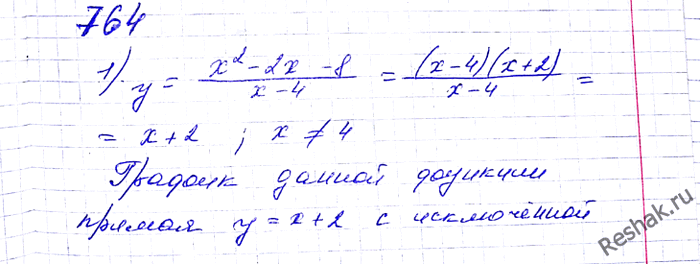 764
1). y = (x² - 2x - 8)/(x - 4) = ((x - 4)(x + 2))/(x - 4) =
= x + 2 ; x ≠ 4
График данной функции
прямая y = x + 2 с исключённой
Reshak.ru